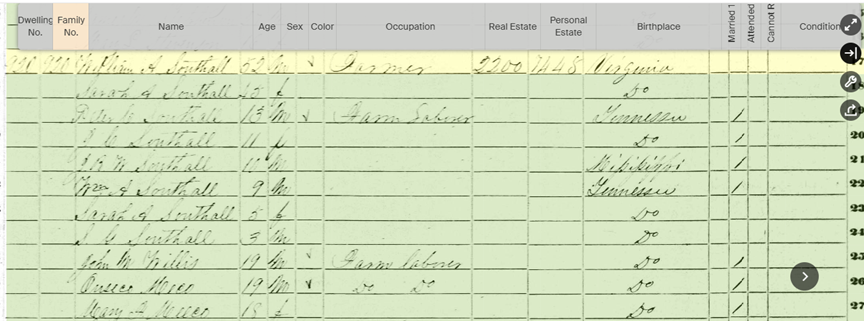 Dwelling No. Family No. Name Age Sex Color Occupation Real Estate Personal Estate Birthplace Married Attended Cannot R Condition
920 920 William A Southall 52 M Farmer 2200 7448 Virginia
Sarah A Southall 45 f Do
Peter C Southall 13 M Farm Laborer Tennessee 1
Southall 11 f Do 1 20
Southall 10 M Mississippi 1 21
Wm A Southall 9 M Tennessee 1 22
Sarah A Southall 5 f Do 23
S G Southall 3 M Do 24
John M Willis 19 M Farm laborer Do 1 25
19 M Do Do Do 1 26
Mary 18 f Do 1 27